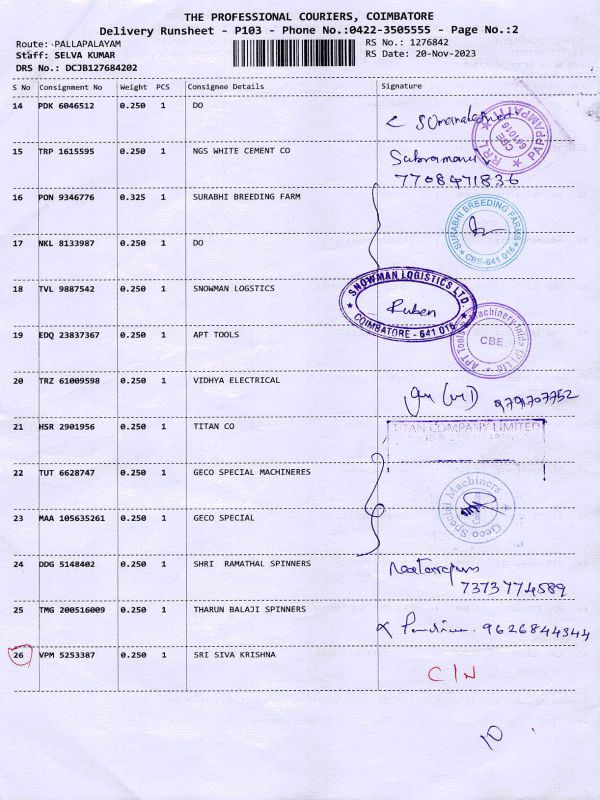 THE PROFESSIONAL COURIERS, COIMBATORE
Delivery Runsheet - P103 - Phone No.:0422-3505555 - Page No.:2
Route: PALLAPALAYAM RS No.: 1276842
Staff: SELVA KUMAR RS Date: 20-Nov-2023
DRS No.: DCJB127684202
S No Consignment No Weight PCS Consignee Details Signature
14 PDK 6046512 0.250 1 DO
RRL PAPPAMPATTI CBE 641016
15 TRP 1615595 0.250 1 NGS WHITE CEMENT CO Subramani
7708471836
16 PON 9346776 0.325 1 SURABHI BREEDING FARM
SURABHI BREEDING FARMS CBE-641 016
17 NKL 8133987 0.250 1 DO
18 TVL 9887542 1 SNOWMAN LOGSTICS
0.250
SNOWMAN LOGISTICS LTD. Ruben COIMBATORE - 641 016
19 EDQ 23837367 0.250 1 APT TOOLS
APT Tools Machinery India (P) Ltd CBE
20 TRZ 61009598 0.250 1 VIDHYA ELECTRICAL 9791707752
21 HSR 2901956 0.250 1 TITAN CO TITAN COMPANY LIMITED
22 TUT 6628747 0.250 1 GECO SPECIAL MACHINERES
Geco Special Machiners
23 MAA 105635261 0.250 1 GECO SPECIAL
24 DDG 5148402 0.250 1 SHRI RAMATHAL SPINNERS
7373774589
25 TMG 200516009 0.250 1 THARUN BALAJI SPINNERS 9626844344
26 VPM 5253387 0.250 1 SRI SIVA KRISHNA
C/N
10